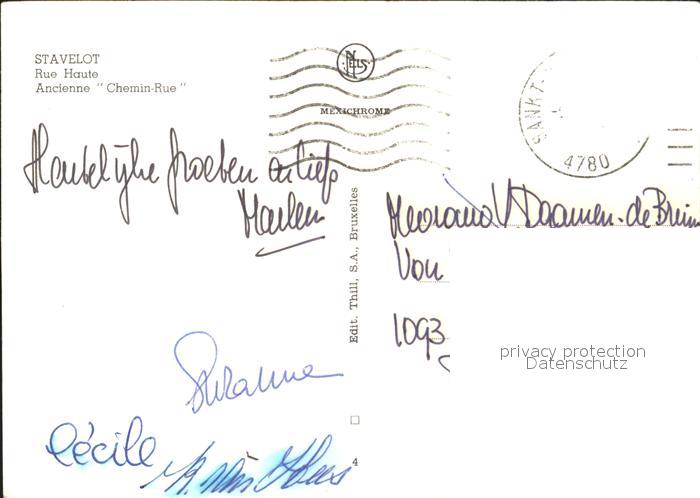 STAVELOT
Rue Haute
Ancienne "Chemin-Rue"
NELS
MEXICHROME
SANKT
4780
Hartelijke groeten
Marleen
Edit. Thill, S.A., Bruxelles
Daamen-de Bruin
Von
1093
privacy protection
Datenschutz
Suzanne
Cécile
4